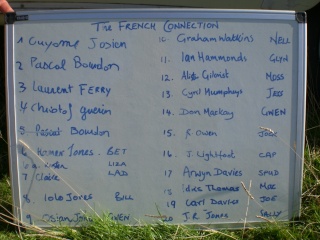 The FRENCH CONNECTION
1 Guyomc Josien
2 Pascal Bourdon
3 Laurent FERRY
4 Christof guerin
5 Pascal Bourdon
6 Homer Jones. BET
LIZA
7 Claire LAD
8 Iolo Jones BILL
9 Osian Jones GWEN
10. Graham Watkins NELL
11. Ian Hammonds GLYN
12. Alec Gilvist MOSS
13. Cyril Humphreys JESS
14. Don Mackay GWEN
15. R. Owen
16. T. Lightfoot CAP
17 Arwyn Davies SPUD
18 Idris Thomas MAC
19 Carl Davies JOE
20 J.R Jones SALLY